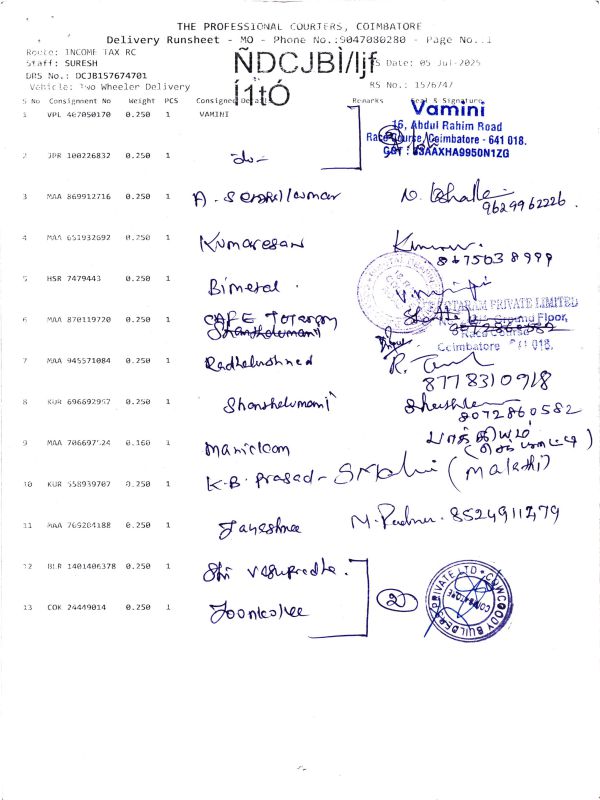 THE PROFESSIONAL COURIERS, COIMBATORE
Delivery Runsheet - MO - Phone No.:9047080280 - Page No.:1
Route: INCOME TAX RC
Staff: SURESH
ÑDCJBÌ/Ijf
Í1tÓ
DRS Date: 05 Jul-2025
DRS No.: DCJB157674701
RS No.: 1576747
Vehicle: Two Wheeler Delivery
S No Consignment No Weight PCS Consignee Details Remarks Seal & Signature
1 VPL 467050170 0.250 1 VAMINI
Vamini
16, Abdul Rahim Road
Race Course, Coimbatore - 641 018.
GST : 33AAXHA9950N1ZG
2 JPR 100226832 0.250 1 do-
3 MAA 869912716 0.250 1 A. Senthilkumar
9629962226.
4 MAA 651932692 0.250 1 Kumaresan
8675038999
5 HSR 7479443 0.250 1 Bimetal.
6 MAA 870119720 0.250 1 CAFE Totaram
Shanthalumani
TOTARAM PRIVATE LIMITED
Ground Floor,
Race Course
Coimbatore 641 018.
7 MAA 945571084 0.250 1 Radhakrishned
8778310918
8 KUR 696692967 0.250 1 Shanthalumani
8072860582
9 MAA 706697124 0.160 1 Manickam
பாக்கியம்
10 KUR 558939707 0.250 1 K.B. Prasad - (Malathi)
11 MAA 769284188 0.250 1 Jayeshree M. Padma. 8524911279
12 BLR 1401406378 0.250 1 Shri Vasupradha.
13 COK 24449014 0.250 1
2
PRIVATE LTD
COIMBATORE
BUILDERS